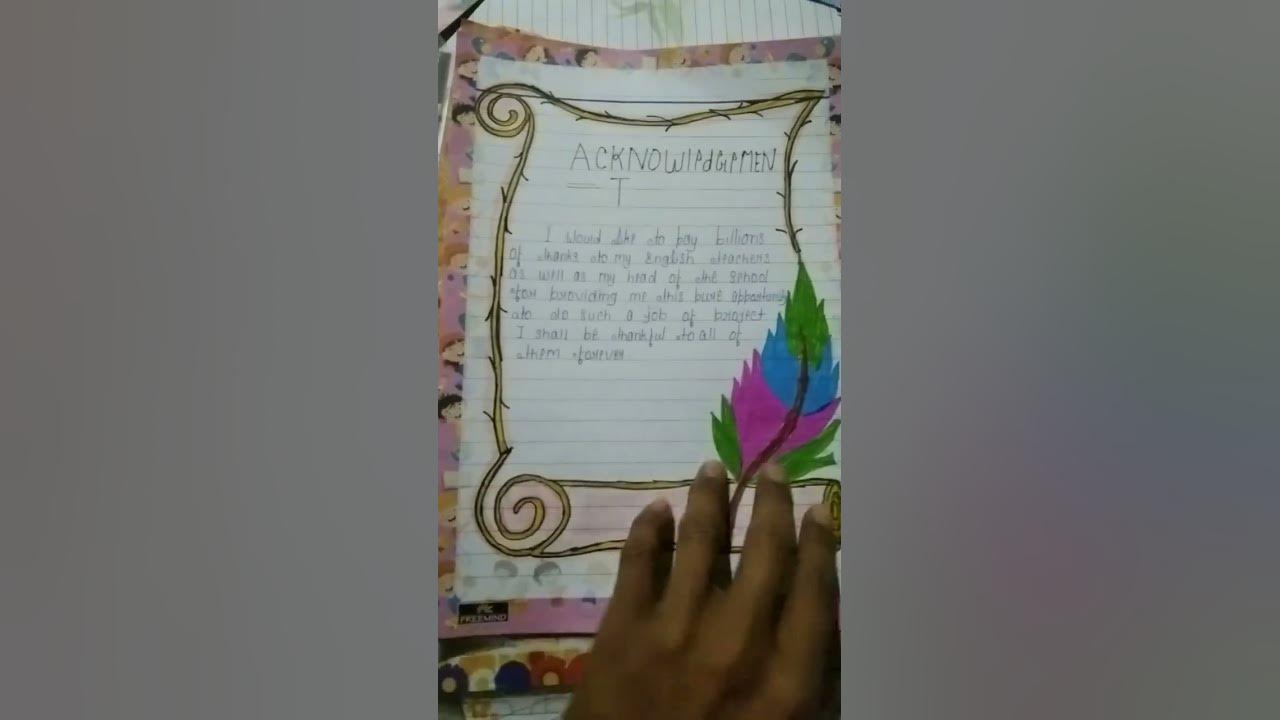 ACKNOWlEdGEMEN
T
I would like to pay billions
of thanks to my English teachers
as well as my head of the School
for providing me this pure opportunity
to do such a job of project
I shall be thankful to all of
them forever
FREEMIND